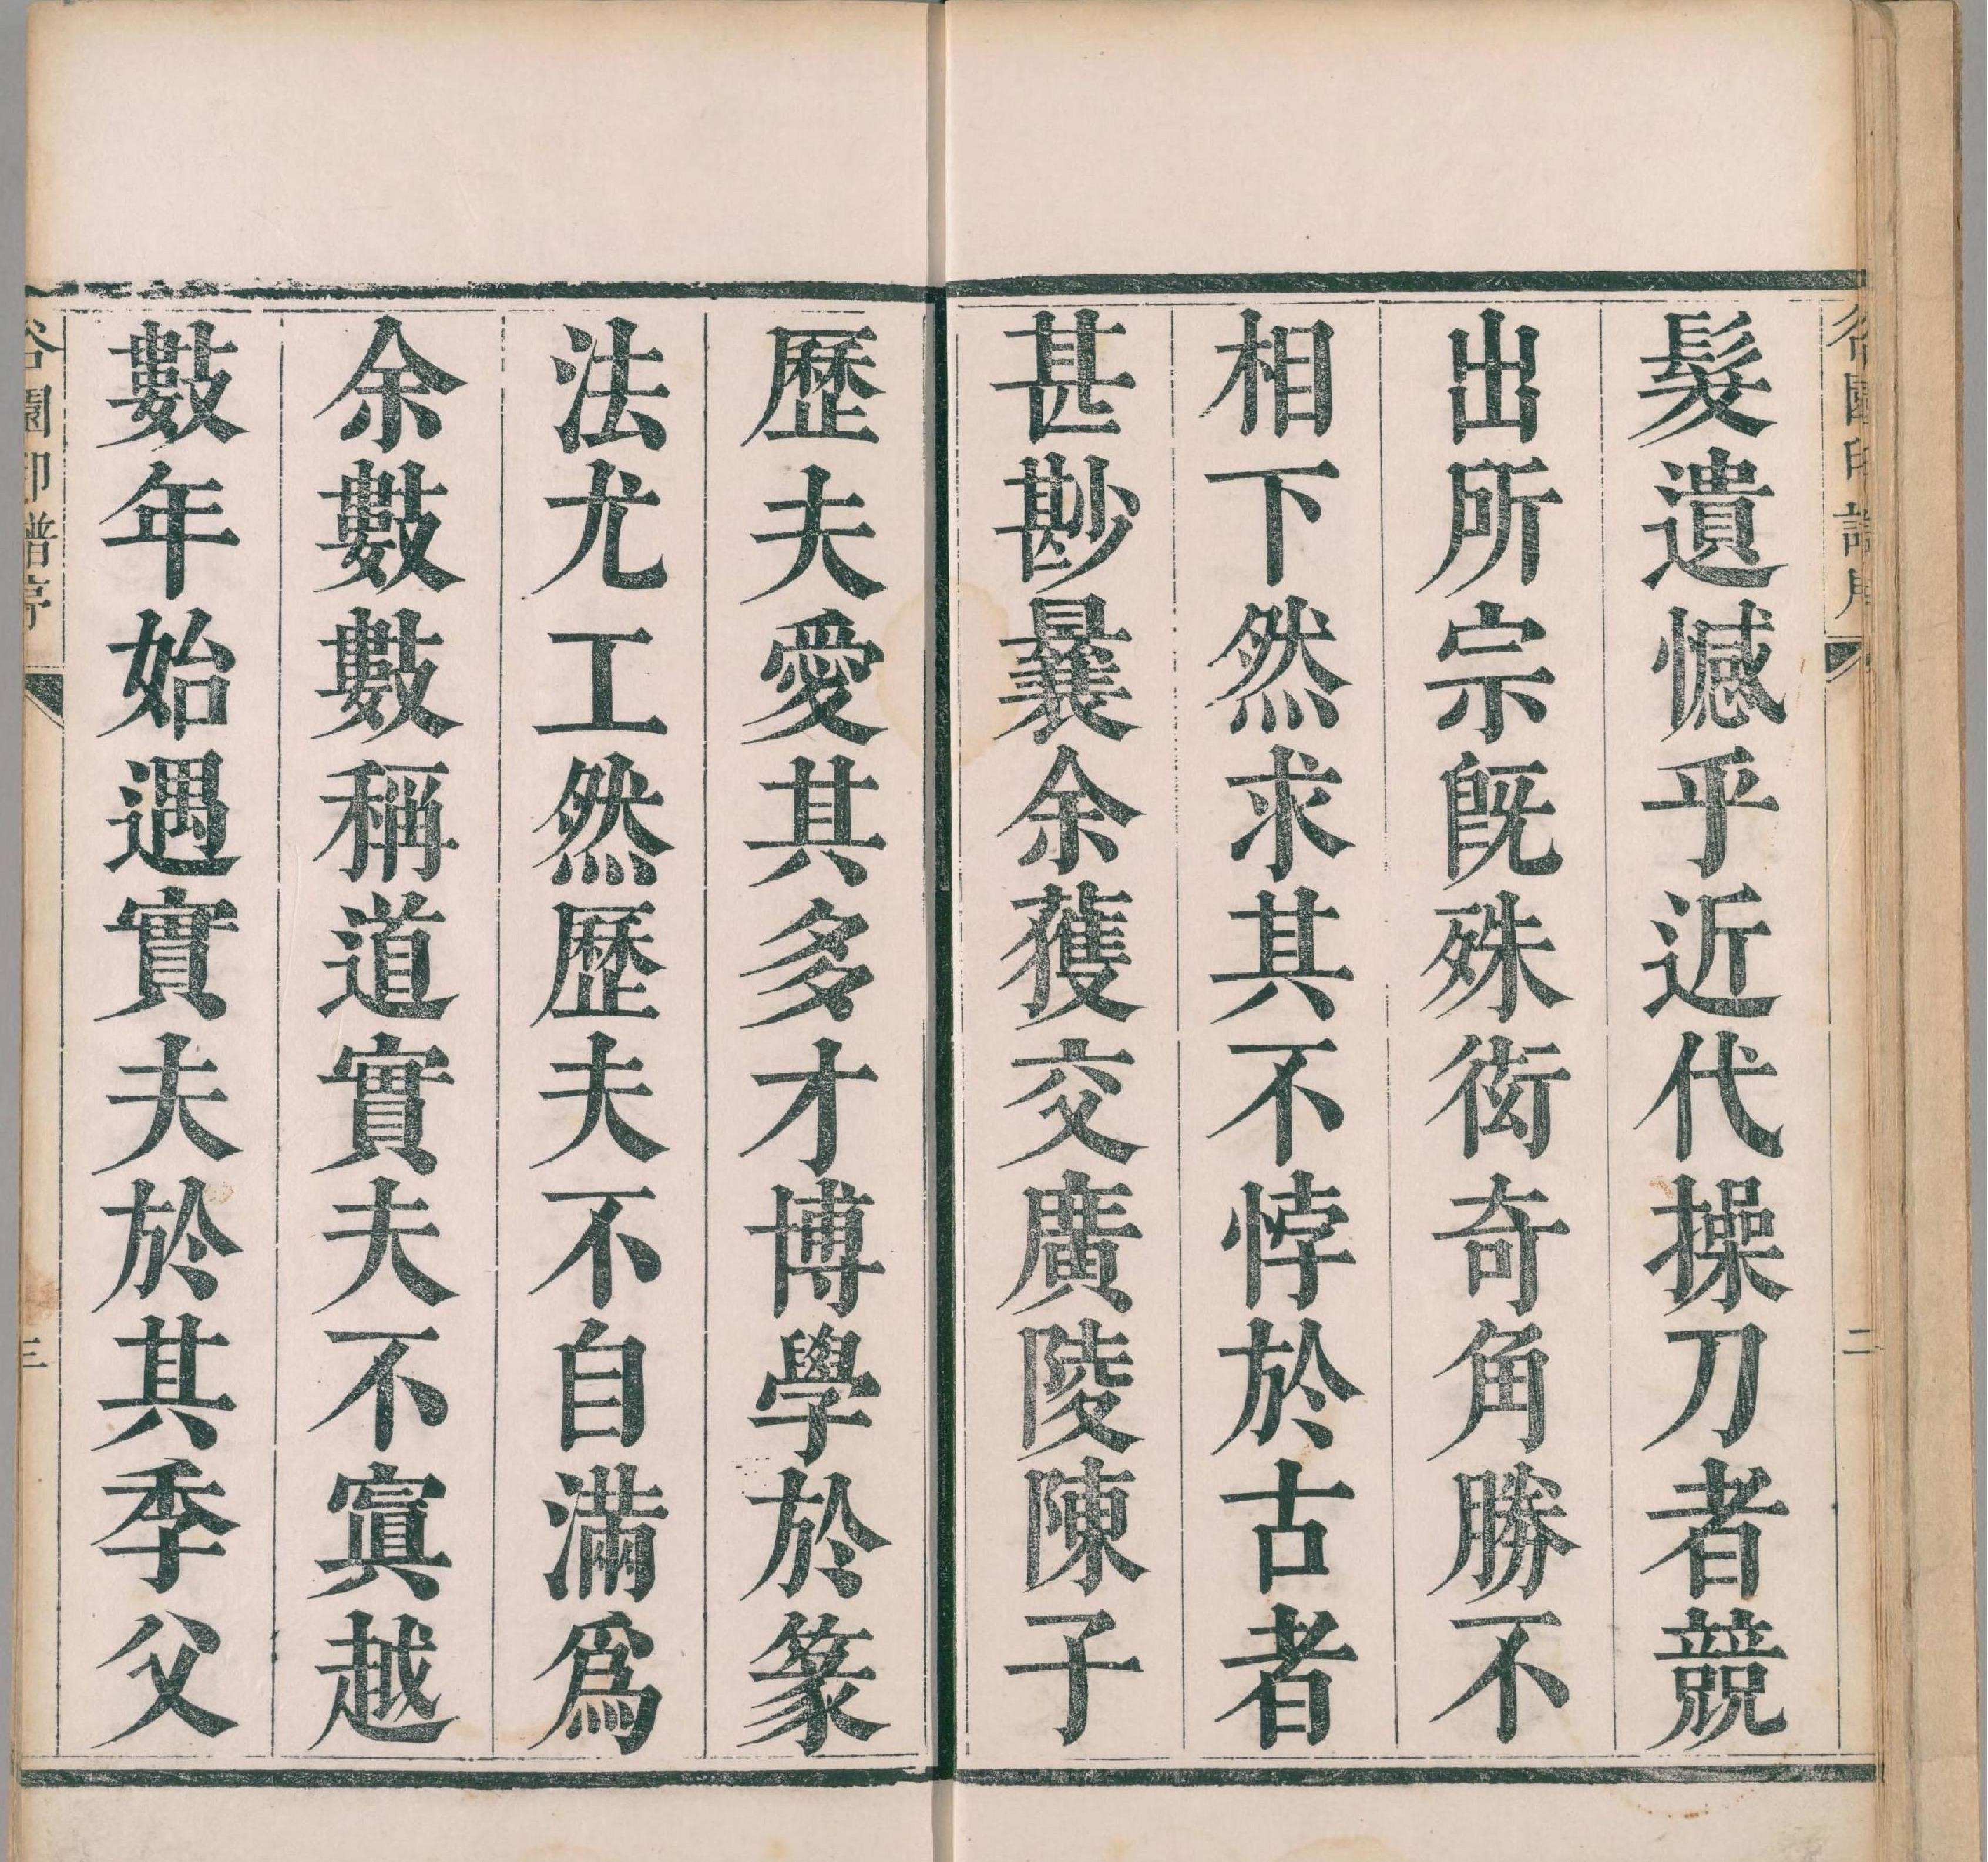 谷園印譜序
二
髮遺憾乎近代操刀者競
出所宗旣殊衒奇角勝不
相下然求其不悖於古者
甚尠曩余獲交廣陵陳子
歷夫愛其多才博學於篆
法尤工然歷夫不自滿爲
余數數稱道實夫不寘越
數年始遇實夫於其季父
谷園印譜序
三